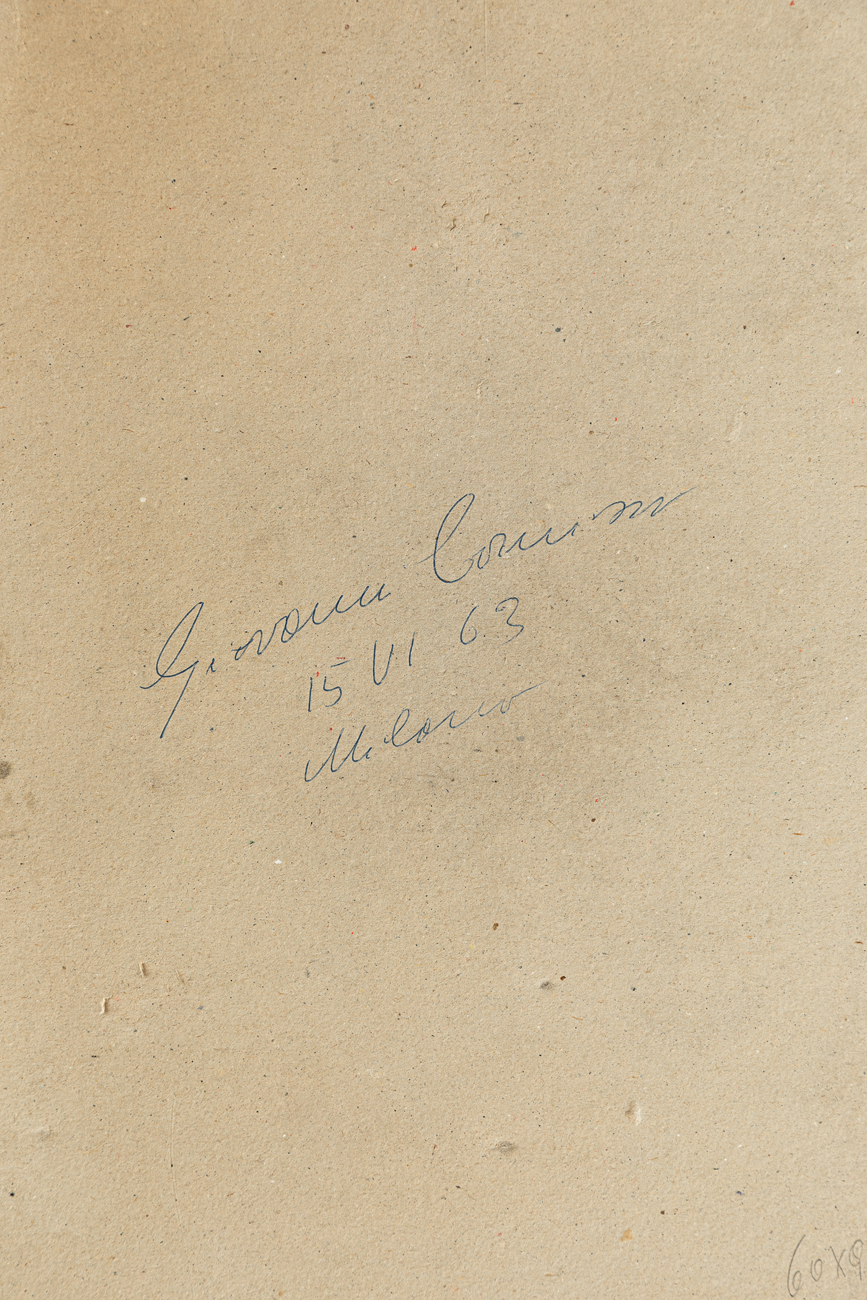 Giovanni Comisso
15 VI 63
Milano
60x9